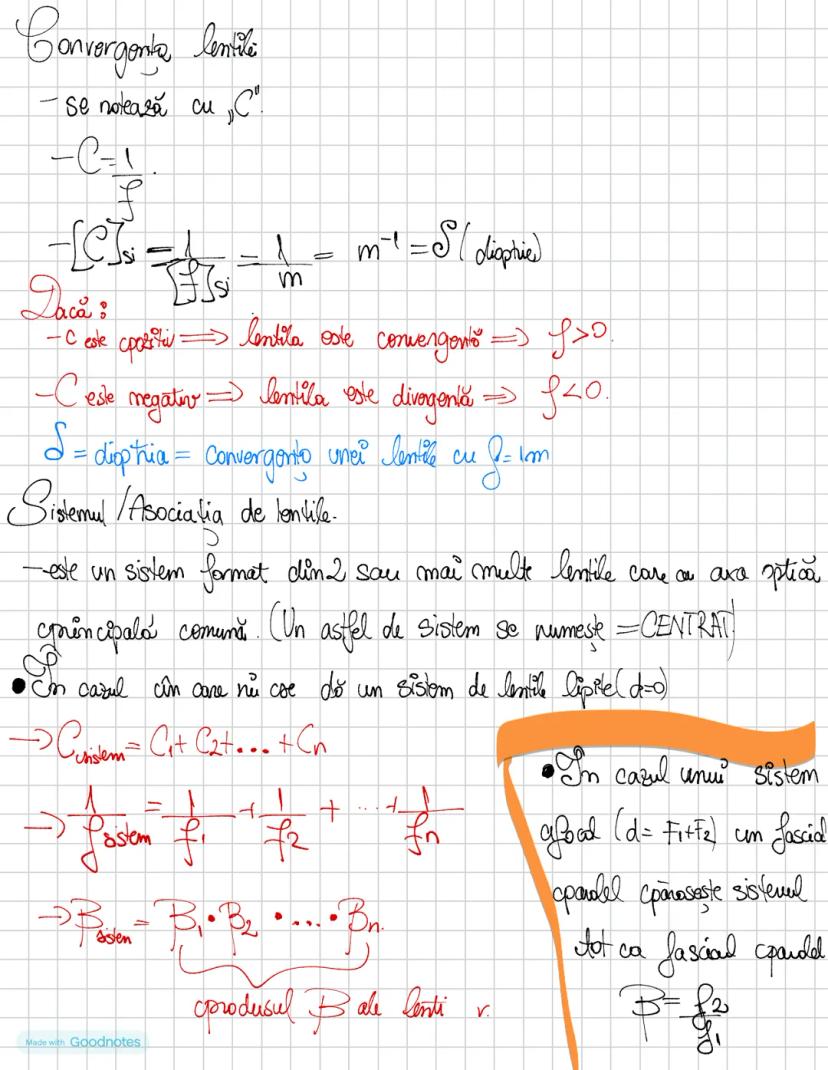 Convergența lentilei
- se notează cu „C”.
- C = 1/f.
- [C]si = 1/[f]si = 1/m = m⁻¹ = δ (dioptrie)
Dacă:
- C este pozitiv ⟹ lentila este convergentă ⟹ f > 0.
- C este negativ ⟹ lentila este divergentă ⟹ f < 0.
δ = dioptria = convergența unei lentile cu f = 1m
Sistemul / Asociația de lentile.
- este un sistem format din 2 sau mai multe lentile care au axa optică
principală comună. (Un astfel de sistem se numește = CENTRAT)
• În cazul în care ni se dă un sistem de lentile lipite (d=0)
→ Csistem = C1 + C2 + ... + Cn
→ 1/fsistem = 1/f1 + 1/f2 + ... + 1/fn
→ βsistem = β1 · β2 · .... · βn.
produsul β ale lenti r.
• În cazul unui sistem
afocal (d = F1+F2) un fascicul
paralel părăsește sistemul
tot ca fascicul paralel
β = f2/f1
Made with Goodnotes